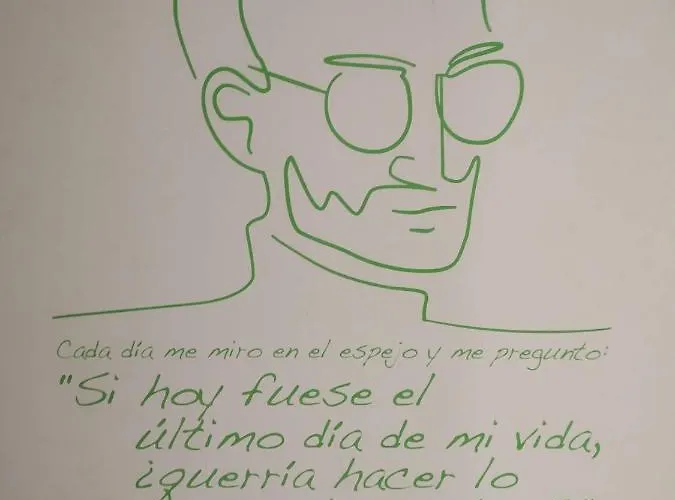 Cada día me miro en el espejo y me pregunto:
"Si hoy fuese el
último día de mi vida,
¿querría hacer lo